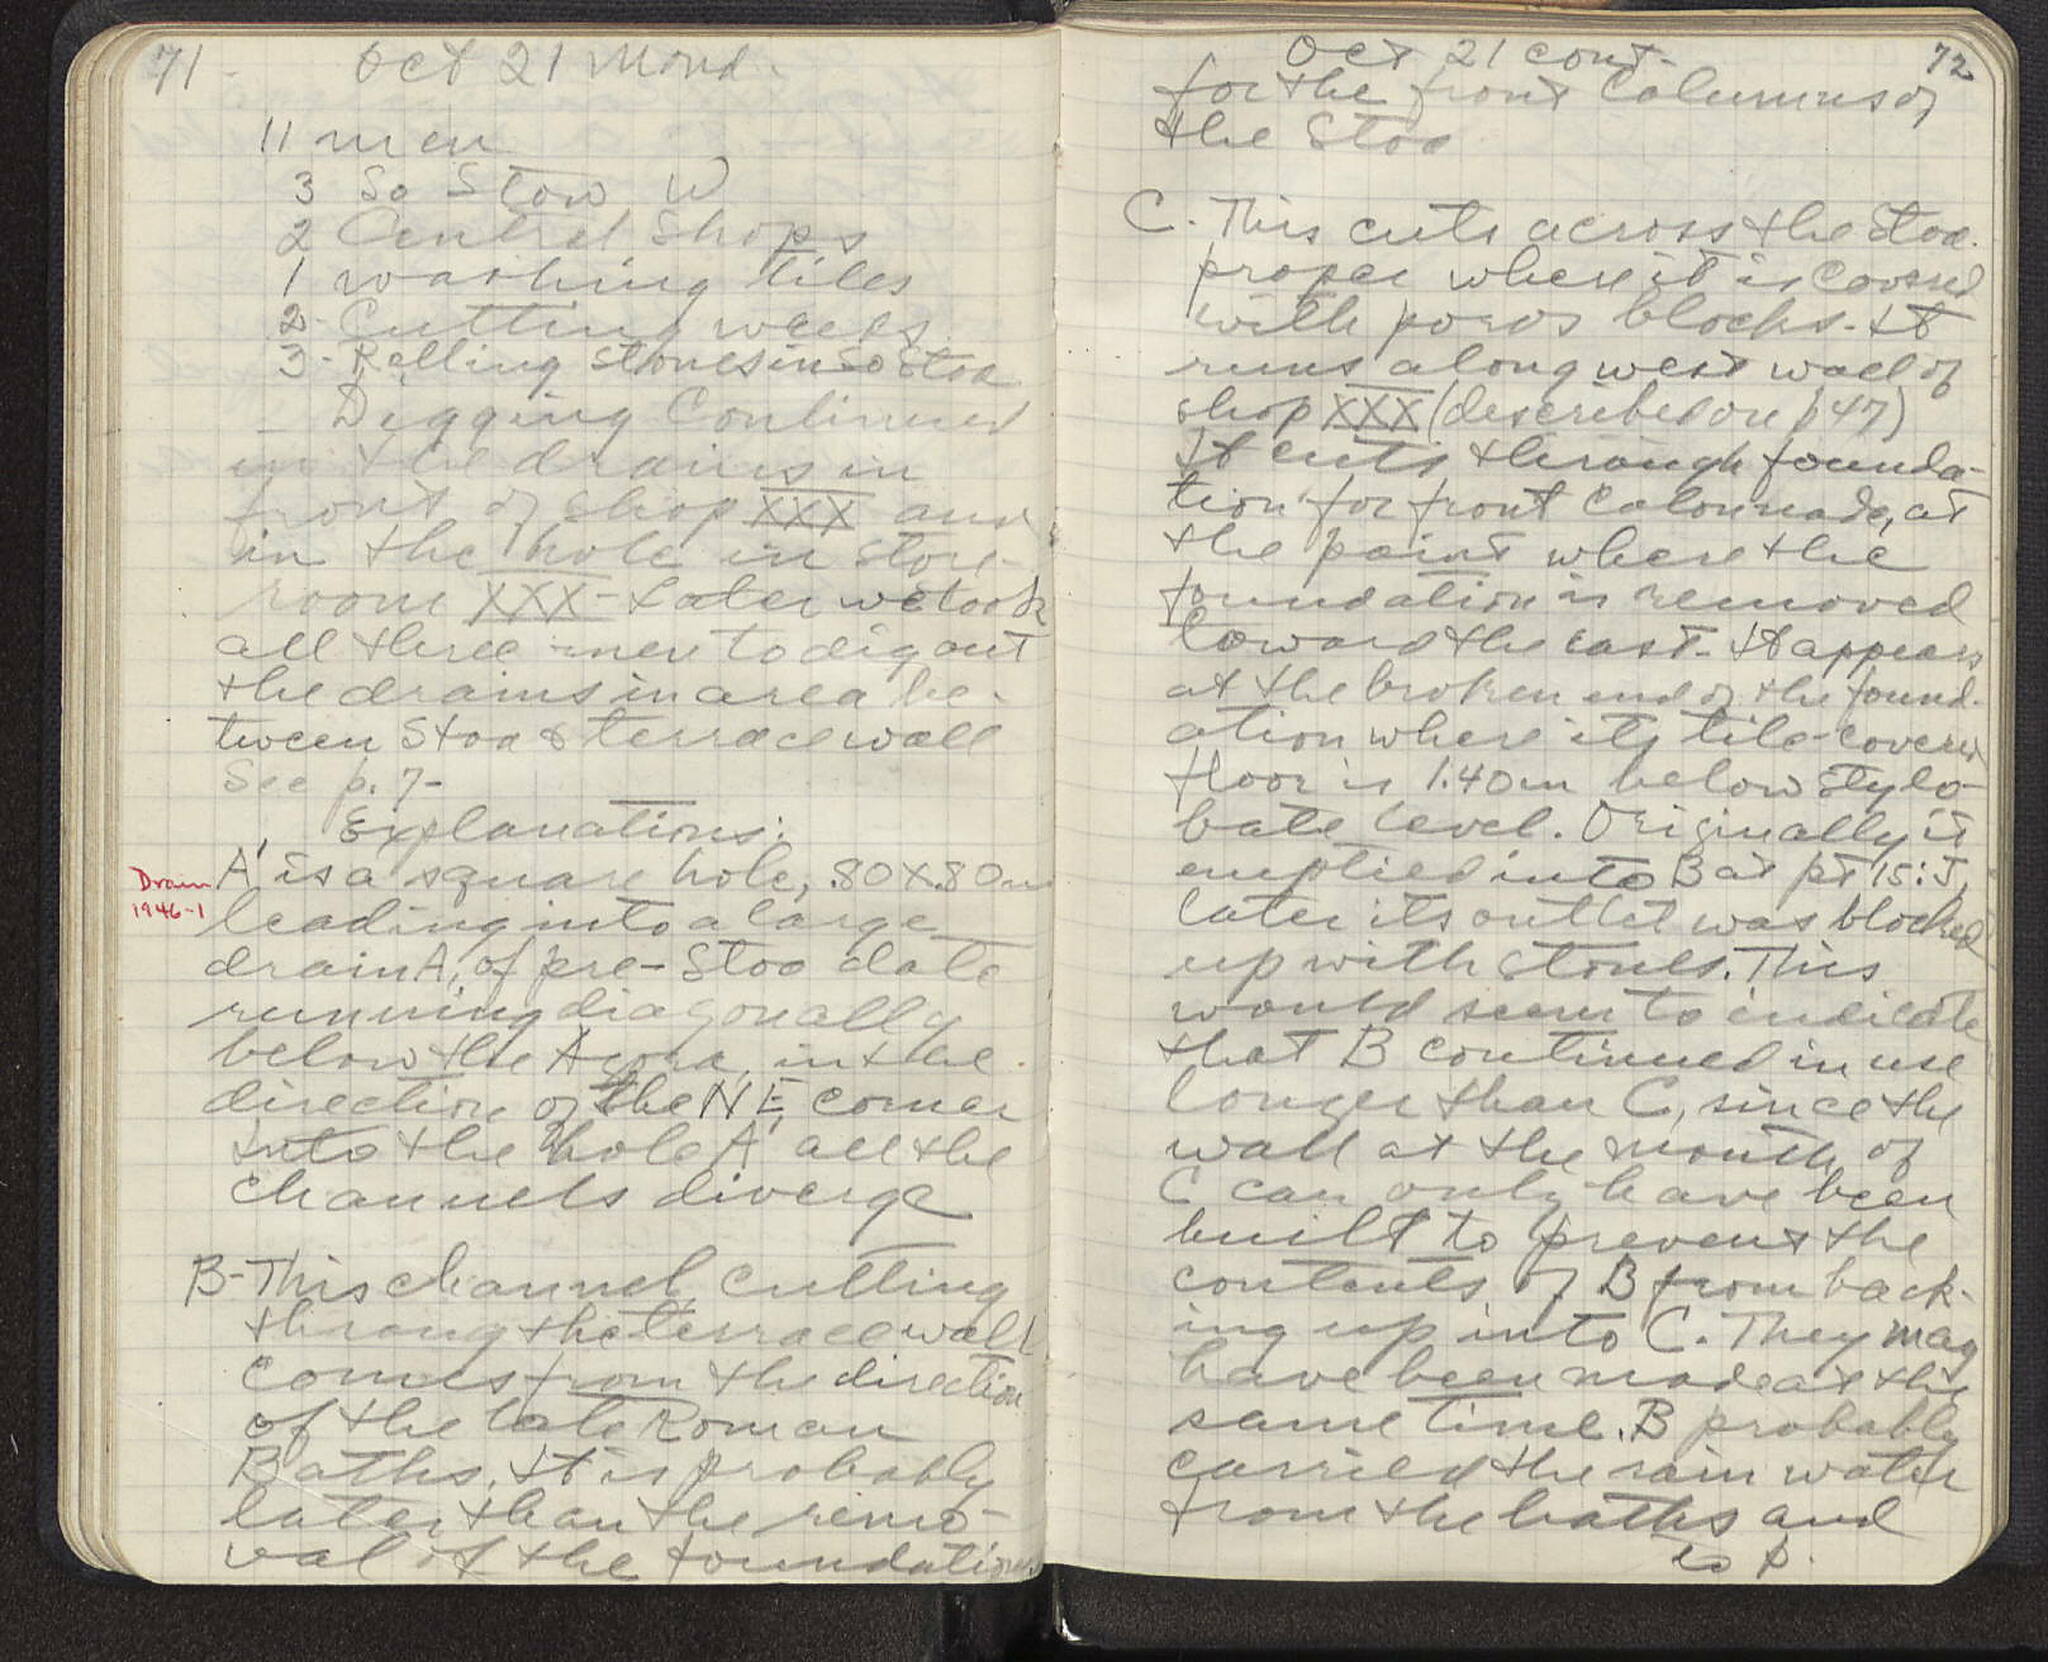 71
Oct 21 Mond.
11 men
3 So Stow W
2 Central Shops
1 washing tiles
2 - Cutting weeds
3 - Rolling stones in So Stoa
Digging Continued
in the drains in
front of Shop XXX and
in the hole in store-
room XXX - Later we took
all three men to dig out
the drains in area be-
tween Stoa & terrace wall
See p. 7-
Explanations:
Drain
1946-1
A' is a square hole, .80 X .80m
leading into a large
drain A, of pre-Stoa date
running diagonally
below the Agora, in the
direction of the NE corner
Into the hole A' all the
channels diverge
B - This channel, cutting
throug the terrace wall
comes from the direction
of the late Roman
Baths. It is probably
later than the remo-
val of the foundations
Oct 21 cont.
72
for the front Columns of
the Stoa
C. This cuts across the Stoa
proper where it is covered
with poros blocks. It
runs along west wall of
shop XXX (described on p 47)
It cuts through founda-
tion for front Colonnade, at
the point where the
foundation is removed
toward the east. It appears
at the broken end of the found-
ation where its tile-covered
floor is 1.40m below stylo-
bate level. Originally it
emptied into B at pt 15:J,
later its outlet was blocked
up with stones. This
would seem to indicate
that B continued in use
longer than C, since the
wall at the mouth of
C can only have been
built to prevent the
contents of B from back-
ing up into C. They may
have been made at the
same time. B probably
carried the rain water
from the baths and
to p.